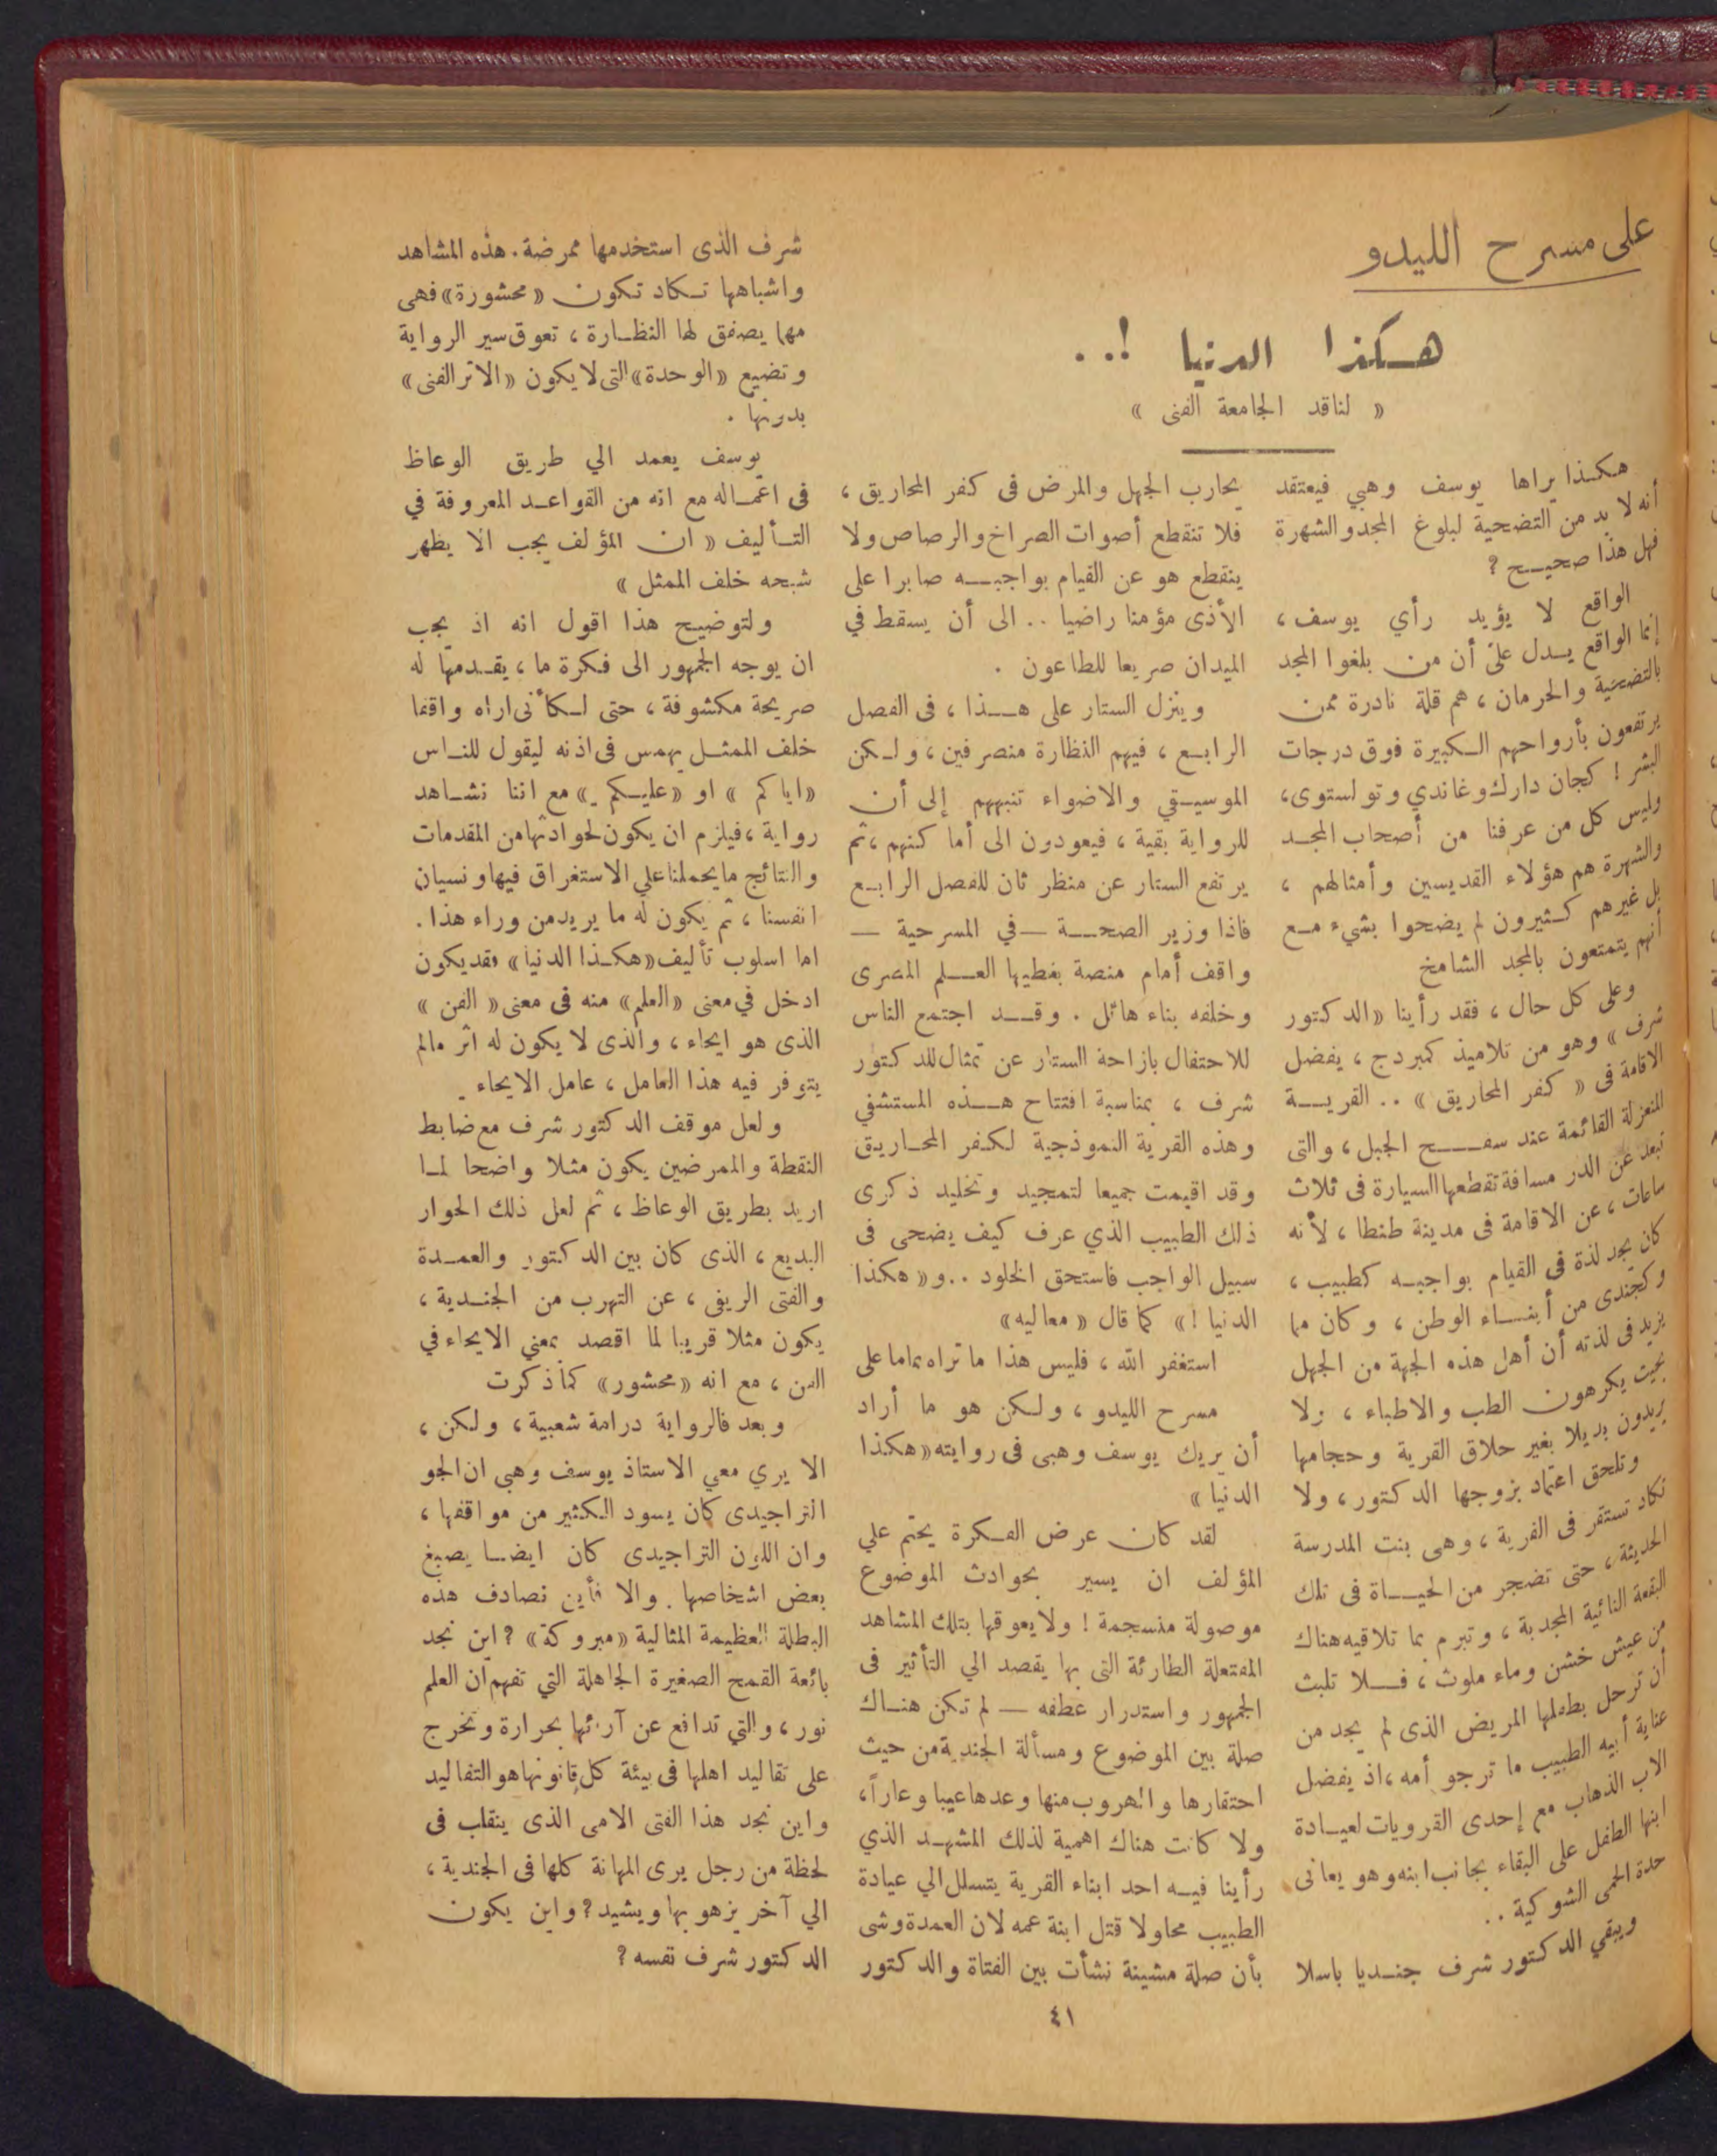 على مسرح الليدو
هكذا الدنيا !..
« لناقد الجامعة الفنى »
هكذا يراها يوسف وهبي فيعتقد
أنه لا بد من التضحية لبلوغ المجد والشهرة
فهل هذا صحيح ؟
الواقع لا يؤيد رأي يوسف ،
إنما الواقع يدل على أن من بلغوا المجد
بالتضحية والحرمان ، هم قلة نادرة ممن
يرتفعون بأرواحهم الكبيرة فوق درجات
البشر ! كجان دارك وغاندي وتولستوى ،
وليس كل من عرفنا من أصحاب المجد
والشهرة هم هؤلاء القديسين وأمثالهم ،
بل غيرهم كثيرون لم يضحوا بشيء مع
أنهم يتمتعون بالمجد الشامخ
وعلى كل حال ، فقد رأينا «الدكتور
شرف » وهو من تلاميذ كمبردج ، يفضل
الاقامة فى « كفر المحاريق » .. القرية
المنعزلة القائمة عند سفح الجبل ، والتى
تبعد عن الدر مسافة تقطعها السيارة فى ثلاث
ساعات ، عن الاقامة فى مدينة طنطا ، لأنه
كان يجد لذة فى القيام بواجبه كطبيب ،
وكجندى من أبناء الوطن ، وكان مما
يزيد فى لذته أن أهل هذه الجهة من الجهل
بحيث يكرهون الطب والاطباء ، ولا
يريدون بديلا بغير حلاق القرية وحجامها
وتلحق اعتماد بزوجها الدكتور ، ولا
تكاد تستقر فى القرية ، وهى بنت المدرسة
الحديثة ، حتى تضجر من الحياة فى تلك
البقعة النائية المجدبة ، وتبرم بما تلاقيه هناك
من عيش خشن وماء ملوث ، فلا تلبث
أن ترحل بطفلها المريض الذى لم يجد من
عناية أبيه الطبيب ما ترجو أمه ، اذ يفضل
الاب الذهاب مع إحدى القرويات لعيادة
ابنها الطفل على البقاء بجانب ابنه وهو يعانى
حدة الحمى الشوكية ..
ويبقي الدكتور شرف جنديا باسلا
يحارب الجهل والمرض فى كفر المحاريق ،
فلا تنقطع أصوات الصراخ والرصاص ولا
ينقطع هو عن القيام بواجبه صابرا على
الأذى مؤمنا راضيا .. الى أن يسقط في
الميدان صريعا للطاعون .
وينزل الستار على هذا ، فى الفصل
الرابع ، فيهم النظارة منصرفين ، ولكن
الموسيقي والاضواء تنبههم إلى أن
للرواية بقية ، فيعودون الى أماكنهم ، ثم
يرتفع الستار عن منظر ثان للفصل الرابع
فاذا وزير الصحة — في المسرحية —
واقف أمام منصة يغطيها العلم المصرى
وخلفه بناء هائل . وقد اجتمع الناس
للاحتفال بازاحة الستار عن تمثال للدكتور
شرف ، بمناسبة افتتاح هذه المستشفي
وهذه القرية النموذجية لكفر المحاريق
وقد اقيمت جميعا لتمجيد وتخليد ذكرى
ذلك الطبيب الذي عرف كيف يضحى فى
سبيل الواجب فاستحق الخلود .. و«هكذا
الدنيا !» كما قال « معاليه»
استغفر الله ، فليس هذا ما تراه تماما على
مسرح الليدو ، ولكن هو ما أراد
أن يريك يوسف وهبى فى روايته «هكذا
الدنيا »
لقد كان عرض الفكرة يحتم علي
المؤلف ان يسير بحوادث الموضوع
موصولة منسجمة ! ولا يعوقها بتلك المشاهد
المفتعلة الطارئة التى بها يقصد الي التأثير فى
الجمهور واستدرار عطفه — لم تكن هناك
صلة بين الموضوع ومسألة الجندية من حيث
احتقارها والهروب منها وعدها عيبا وعاراً ،
ولا كانت هناك اهمية لذلك المشهد الذي
رأينا فيه احد ابناء القرية يتسلل الي عيادة
الطبيب محاولا قتل ابنة عمه لان العمدة وشى
بأن صلة مشينة نشأت بين الفتاة والدكتور
شرف الذى استخدمها ممرضة . هذه المشاهد
واشباهها تكاد تكون «محشورة» فهى
مهما يصفق لها النظارة ، تعوق سير الرواية
وتضيع «الوحدة» التى لا يكون «الاثر الفنى»
بدونها .
يوسف يعمد الي طريق الوعاظ
فى اعماله مع انه من القواعد المعروفة في
التأليف « ان المؤلف يجب الا يظهر
شبحه خلف الممثل »
ولتوضيح هذا اقول انه اذ يجب
ان يوجه الجمهور الى فكرة ما ، يقدمها له
صريحة مكشوفة ، حتى لكأنى اراه واقفا
خلف الممثل يهمس فى اذنه ليقول للناس
«اياكم » او «عليكم» مع اننا نشاهد
رواية ، فيلزم ان يكون لحوادثها من المقدمات
والنتائج ما يحملنا علي الاستغراق فيها ونسيان
انفسنا ، ثم يكون له ما يريد من وراء هذا .
اما اسلوب تأليف «هكذا الدنيا» فقد يكون
ادخل في معنى «العلم» منه فى معنى « الفن »
الذى هو ايحاء ، والذى لا يكون له اثر مالم
يتوفر فيه هذا العامل ، عامل الايحاء .
ولعل موقف الدكتور شرف مع ضابط
النقطة والممرضين يكون مثلا واضحا لما
اريد بطريق الوعاظ ، ثم لعل ذلك الحوار
البديع ، الذى كان بين الدكتور والعمدة
والفتى الريفى ، عن التهرب من الجندية ،
يكون مثلا قريبا لما اقصد بمعني الايحاء في
الفن ، مع انه «محشور» كما ذكرت
وبعد فالرواية درامة شعبية ، ولكن ،
الا يري معي الاستاذ يوسف وهبى ان الجو
التراجيدى كان يسود الكثير من مواقفها ،
وان اللون التراجيدى كان ايضا يصبغ
بعض اشخاصها . والا فأين نصادف هذه
البطلة العظيمة المثالية «مبروكة» ؟ اين نجد
بائعة القمح الصغيرة الجاهلة التي تفهم أن العلم
نور ، والتي تدافع عن آرائها بحرارة وتخرج
على تقاليد اهلها فى بيئة كل قانونها هو التقاليد
واين نجد هذا الفتى الامى الذى ينقلب فى
لحظة من رجل يرى المهانة كلها فى الجندية ،
الي آخر يزهو بها ويشيد ؟ واين يكون
الدكتور شرف نفسه ؟
٤١